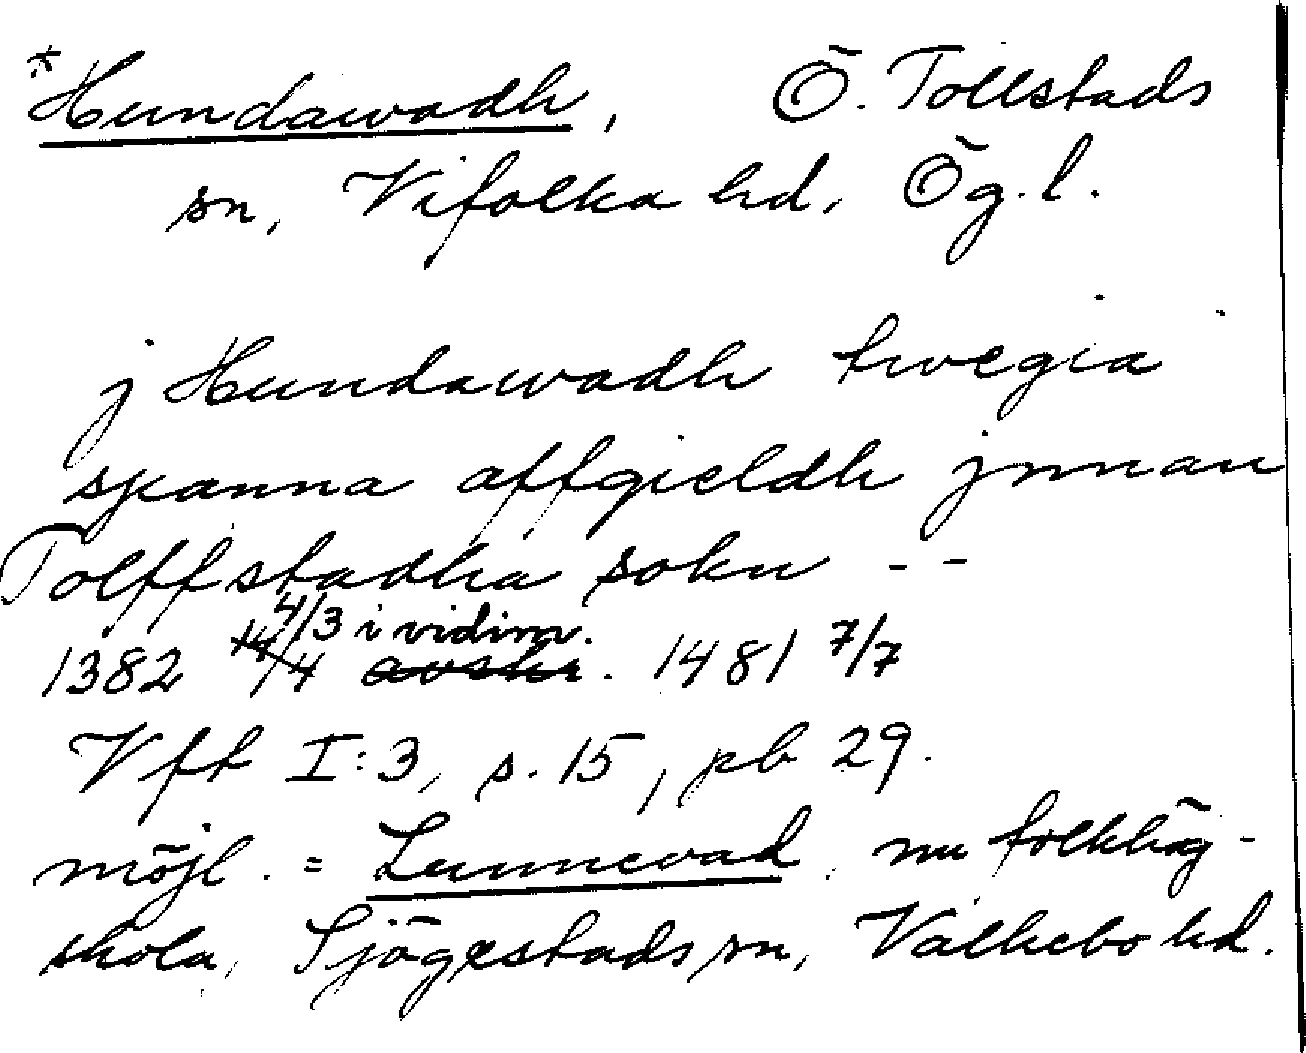 *Hundawadh, Ö. Tollstads
sn, Vifolka hd, Ög. l.
j Hundawadh twegia
spanna affgieldh jnnan
Tolffstadha sokn - -
4/3 i vidim.
1382 14/4 avskr. 1481 7/7
Vff I:3, s. 15, pb 29.
möjl. = Lunnevad, nu folkhög-
skola, Sjögestads sn, Valkebo hd.